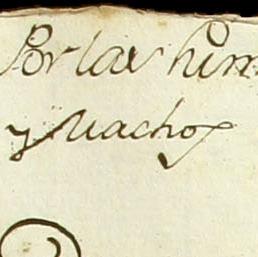 Por las him
y Machos